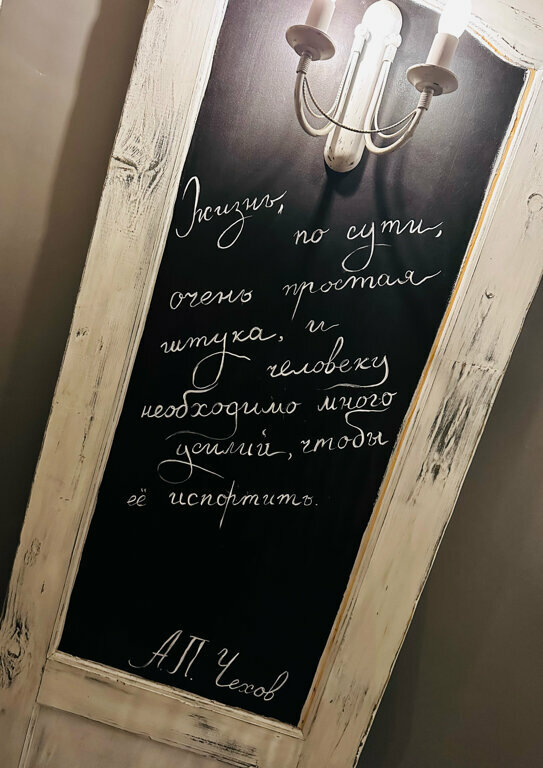 Жизнь,
по сути,
очень простая
штука, и
человеку
необходимо много
усилий, чтобы
её испортить.
А.П. Чехов